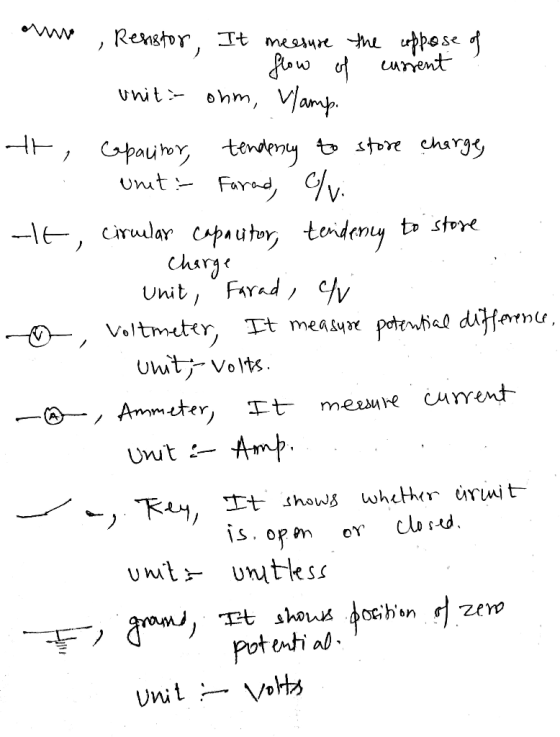 , Resistor, It measure the oppose of
flow of current
unit :- ohm, V/amp.
, Capacitor, tendency to store charge,
Unit :- Farad, C/V.
, circular capacitor, tendency to store
charge
Unit, Farad, C/V
V, Voltmeter, It measure potential difference.
Unit ;- Volts.
A, Ammeter, It measure current
Unit :- Amp.
, Key, It shows whether circuit
is open or closed.
unit :- unitless
, ground, It shows position of zero
potential.
Unit :- Volts